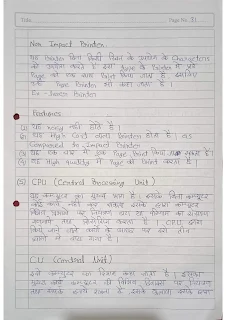 Date
Page No. 31
Non Impact Printer
यह Printer बिना किसी रिबन के उपयोग के Characters
को करते है इस Type के Printer में एक
Page को एक बार Print किया जाता है, इसलिए
इसे Page Printer भी कहा जाता है।
Ex - Laser Printer
Features
(1) यह noisy नहीं होते है।
(2) यह High Cost वाला Printer होता है। as
Compared to Impact Printer
(3) यह एक बार में एक Page Print कर सकता है।
(4) यह High quality में Page को Print करता है।
(5) CPU (Central Processing Unit)
यह कम्प्यूटर का मुख्य भाग है। इसके बिना कम्प्यूटर
कोई कार्य नहीं कर सकता इसके द्वारा कम्प्यूटर
नियंत्रण
है। CPU द्वारा
किये जाने वाले कार्यों के आधार पर इसे तीन
भागों में बांटा गया है।
CU (Control Unit)
इसे कम्प्यूटर का दिमाग कहा जाता है। इसका
मुख्य कार्य कम्प्यूटर की विभिन्न क्रियाओं पर नियंत्रण